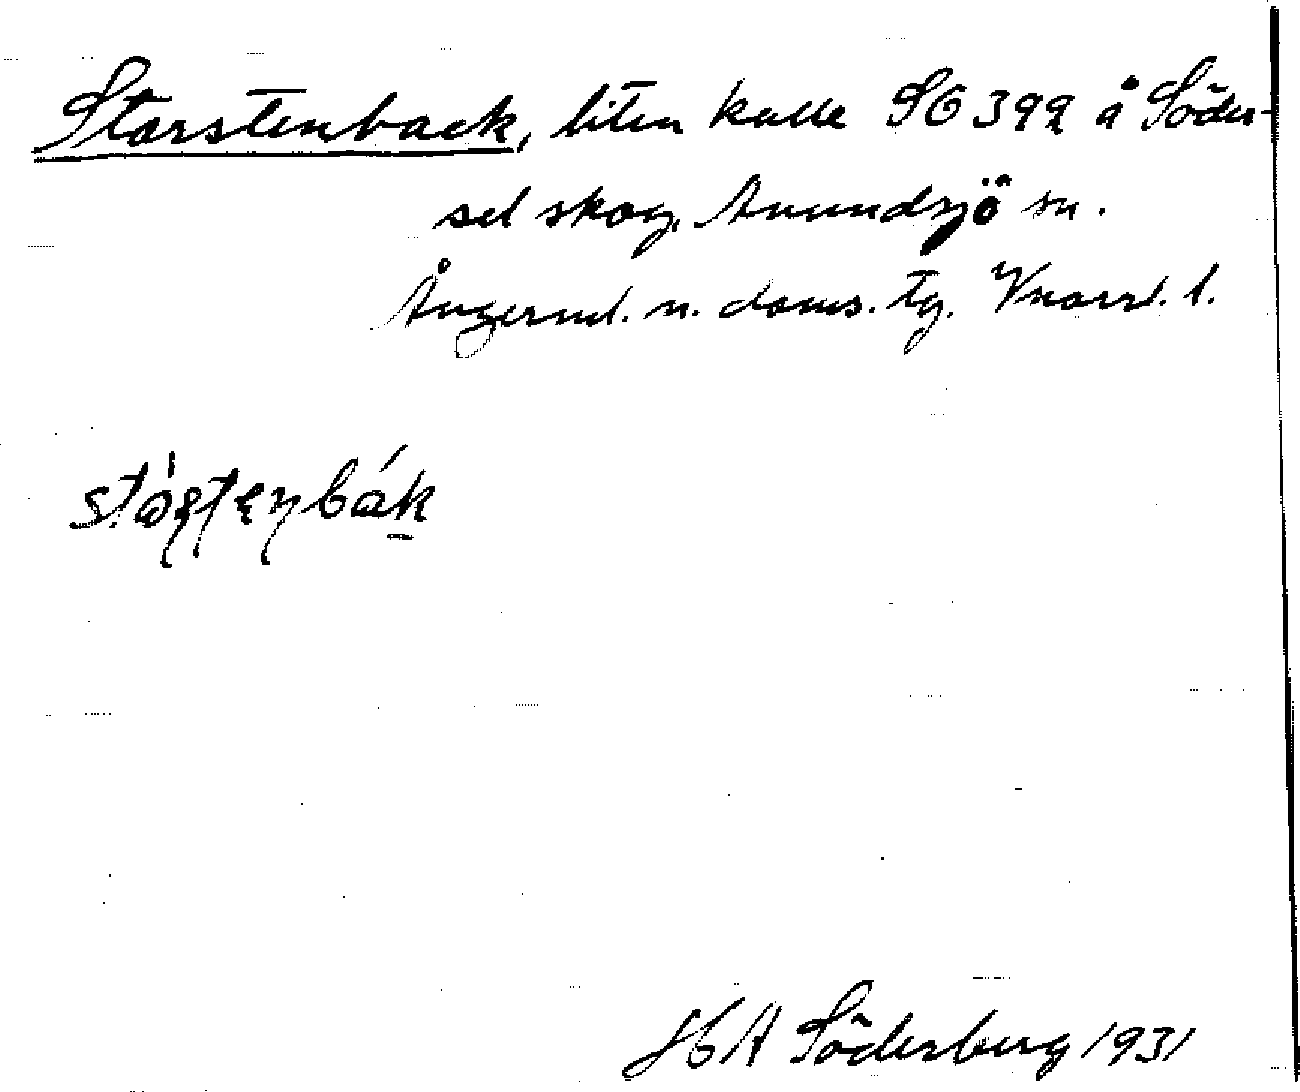 Storstenback, liten kulle SG 399 å Söder-
sel skog, Anundsjö sn.
Ångerml. n. doms. tg. Vnorrl. l.
H A Söderberg 1931